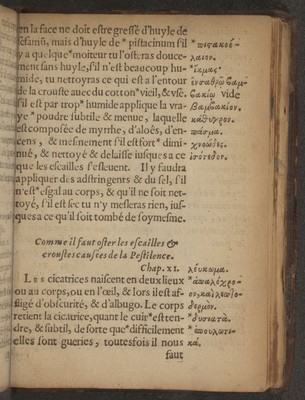 en la face ne doit estre gressé d'huyle de
sesamũ, mais d'huyle de * pistacinum s'il
y a quelque * moiteur tu l'osteras douce-
ment sans huyle, s'il n'est beaucoup hu-
mide, tu nettoyras ce qui est a l'entour
de la crouste auec du cotton * vieil, & vsé.
s'il est par trop * humide applique la vra-
ye * poudre subtile & menue, laquelle
est composée de myrrhe, d'aloës, d'en-
cens, & mesmement s'il est fort * dimi-
nué, & nettoyé & delaisse iusques a ce
que les escailles s'esleuent. Il y faudra
appliquer des adstringents & du sel, s'il
n'est * esgal au corps, & qu'il ne soit net-
toyé, s'il est sec tu n'y mesleras rien, ius-
ques a ce qu'il soit tombé de soymesme.
Comme il faut oster les escailles &
croustes causées de la Pestilence.
Chap. XI.
Les cicatrices naiscent en deux lieux
ou au corps, ou en l'œil, & lors il est af-
fligé d'obscurité, & d'albugo. Le corps
retient la cicatrice, quant le cuir * est ten-
dre, & subtil, de sorte que * difficilement
elles sont gueries, toutesfois il nous
faut
* πιστακοέ-
λαιον.
* ἰκμας
βαμ-
vide
βαμβακίον.
κάθυγρον.
χνοώδες.
ἰσόπεδον.
λεύκωμα.
δερμον.